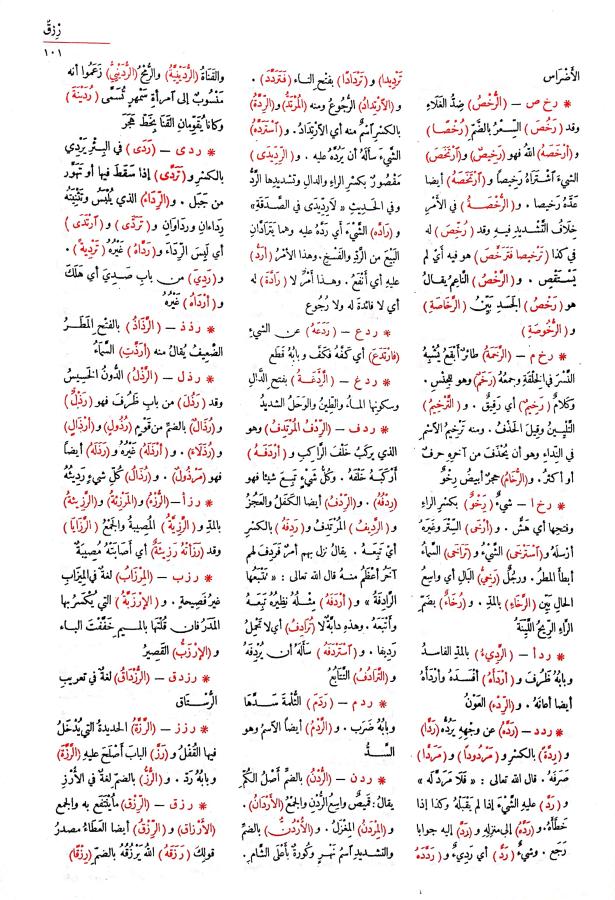 رزق
١٠١
الأَضْرَاس
* ر خ ص – (الرُّخْصُ) ضِدُّ الغَلَاءِ
وقد (رَخُصَ) السِّعْرُ بالضَّمِّ (رُخْصًا)
و(أَرْخَصَهُ) اللهُ فهو (رَخِيصٌ) و(أَرْتَخَصَ)
الشيءَ آشْتَرَاهُ رَخِيصًا و(آرْتَخَصَهُ) أيضا
عَدَّهُ رَخِيصا . و(الرُّخْصَةُ) في الأَمْرِ
خِلَافُ التَّشْدِيدِ فيه وقد (رُخِّصَ) له
في كذا (تَرْخيصا فَتَرَخَّصَ) هو فيه أَيْ لم
يَسْتَقْصِ . و(الرَّخْصُ) النَّاعِمُ يقالُ
هو (رَخْصُ) الجَسَدِ بَيِّنُ (الرَّخَاصَةِ)
و(الرُّخُوصَةِ)
* ر خ م – (الرَّخَمَةُ) طائرٌ أَبْقَعُ يُشْبِهُ
النَّسْرَ في الخِلْقَةِ وجمعُهُ (رَخَمٌ) وهو للجِنْس .
وكَلَامٌ (رَخِيمٌ) أي رَقِيقٌ . و(التَّرْخِيمُ)
التَّلْيِينُ وقيلَ الحَذْفُ . ومنه تَرْخِيمُ الآسْمِ
في النِّداءِ وهو أَن يُحْذَفَ من آخرِهِ حرفٌ
أو أَكثرُ . و(الرُّخَامُ) حجرٌ أبيضُ رِخْوٌ
* ر خ ا – شيءٌ (رِخْوٌ) بكسرِ الراءِ
وفتحِها أي هَشٌّ . و(أَرْخَى) السِّتْرَ وغيرَهُ
أرسَلَهُ و(آسْتَرْخَى) الشَّيْءُ و(تَرَاخَى) السَّمَاءُ
أبطأَ المطرُ . ورجُلٌ (رَخِيُّ) البَالِ أي واسِعُ
الحَالِ بَيِّنُ (الرَّخَاءِ) بالمَدِّ . و(رُخَاءٌ) بضمِّ
الرَّاءِ الرِّيحُ اللَّيِّنَةُ
* ر د أ – (الرَّدِيءُ) بالمدِّ الفاسدُ
وبابُهُ ظَرُفَ و(أَرْدَأَهُ) أَفْسَدَهُ وأَرْدَأَهُ
أيضا أعانَهُ . و(الرِّدْءُ) العَوْنُ
* ر د د – (رَدَّهُ) عن وجْهِهِ يَرُدُّهُ (رَدًّا)
و(رِدَّةً) بالكسْرِ و(مَرْدُوداً) و(مَرَدًّا)
صَرَفَهُ . قال الله تعالى : «فَلَا مَرَدَّ لَهُ»
و(رَدَّ) عليه الشَّيْءَ إذا لم يَقْبَلْهُ وكذا إذا
خَطَّأَهُ و(رَدَّهُ) إلى منزلِهِ و(رَدَّ) إليه جَوابا
رَجَع . وشيءٌ (رَدٌّ) أي رَدِيءٌ و(رَدَّدَهُ
تَرْدِيدا) و(تَرْدَادًا) بفتح التاء (فَتَرَدَّدَ) .
و(الآرْتِدادُ) الرُّجوعُ ومنه (المُرْتَدُّ) و(الرِّدَّةُ)
بالكسْرِ آسْمٌ منه أي الآرْتِدَادُ . و(آسْتَرَدَّهُ)
الشَّيْءَ سأَلَهُ أن يَرُدَّهُ عليه . و(الرِّدِّيدَى)
مَقْصُورٌ بكسرِ الراءِ والدال وتشديدِها الرَّدُّ
وفي الحديث «لَا رِدِّيدَى في الصَّدَقَةِ»
و(رَادَّهُ) الشَّيْءَ أي رَدَّهُ عليه وهما يَتَرَادَّانِ
البَيْعَ من الرَّدِّ والفَسْخِ . وهذا الأمْرُ (أَرَدُّ)
عليه أي أَنْفَعُ . وهذا أمْرٌ لا (رَادَّةَ) له
أي لا فائدةَ له ولا رُجُوعَ
* ر د ع – (رَدَعَهُ) عن الشيءِ
(فارتَدَعَ) أي كَفَّهُ فَكَفَّ وبابُهُ قَطَع
* ر د غ – (الرَّدَغَةُ) بفتح الدَّالِ
وسكونِها الماءُ والطِّينُ والوَحَلُ الشديدُ
* ر د ف – (الرِّدْفُ المُرْتَدِفُ) وهو
الذي يركَبُ خَلْفَ الرَّاكِبِ و(أَرْدَفَهُ)
أَرْكَبَهُ خَلْفَهُ . وكُلُّ شيءٍ تَبِعَ شيئا فهو
(رِدْفُهُ) . و(الرِّدْفُ) أيضا الكَفَلُ والعَجُزُ
و(الرَّدِيفُ) المُرْتَدِفُ و(رَدِفَهُ) بالكسْرِ
أيْ تَبِعَهُ . يقالُ نزلَ بهم أمْرٌ فَرَدِفَ لهم
آخَرُ أعْظَمُ منه قال الله تعالى : «تَتْبَعُهَا
الرَّادِفَةُ» و(أَرْدَفَهُ) مِثْلُهُ نَظِيرُهُ تَبِعَهُ
وأَتْبَعَهُ . وهذه دابَّةٌ لا (تُرَادِفُ) أي لا تَحْمِلُ
رَدِيفا . و(آسْتَرْدَفَهُ) سأَلَهُ أن يُرْدِفَهُ
و(التَّرَادُفُ) التَّتَابُعُ
* ر د م – (رَدَمَ) الثُّلْمَةَ سَدَّها
وبابُهُ ضَرَبَ . و(الرَّدْمُ) أيضا الآسْمُ وهو
السَّدُّ
* ر د ن – (الرُّدْنُ) بالضَّمِّ أَصْلُ الكُمِّ
يقالُ: قَميصٌ واسعُ الرُّدْنِ والجَمْعُ (الأَرْدَانُ) .
و(المِرْدَنُ) المِغْزَلُ . و(الأُرْدُنُّ) بالضمِّ
والتشديدِ آسْمُ نَهْرٍ وكُورةٌ بأَعْلَى الشَّامِ .
والقَنَاةُ (الرُّدَيْنِيَّةُ) والرُّمْحُ (الرُّدَيْنِيُّ) زَعَمُوا أنه
مَنْسُوبٌ إلى آمرأةِ سَمْهَرٍ تُسَمَّى (رُدَيْنَةَ)
وكانا يُقَوِّمانِ القَنَا بخَطِّ هَجَر
* ر د ى – (رَدَى) في البِئْرِ يَرْدِي
بالكسرِ و(تَرَدَّى) إذا سَقَطَ فيها أو تَهَوَّرَ
من جَبَل . و(الرِّدَاءُ) الذي يُلْبَسُ وتثْنِيَتُهُ
رِدَاءانِ ورِدَاوانِ و(تَرَدَّى) و(آرْتَدَى)
أي لَبِسَ الرِّدَاءَ و(رَدَّاهُ) غَيْرُهُ (تَرْدِيَةً) .
و(رَدِيَ) من بابِ صَدِيَ أي هَلَكَ
و(أَرْدَاهُ) غَيْرُهُ
* ر ذ ذ – (الرَّذَاذُ) بالفتحِ المَطَرُ
الضَّعِيفُ يُقالُ منه (أَرَذَّتِ) السَّمَاءُ
* ر ذ ل – (الرَّذْلُ) الدُّونُ الخَسِيسُ
وقد (رَذُلَ) من بابِ ظَرُفَ فهو (رَذْلٌ)
و(رُذَالٌ) بالضمِّ من قَوْمٍ (رُذُولٍ) و(أَرْذَالٍ)
و(رُذَلَاءَ) . و(أَرْذَلَهُ) غَيْرُهُ و(رَذَلَهُ) أيضاً
فهو (مَرْذُولٌ) . و(رُذَالُ) كُلِّ شيءٍ رَدِيئُهُ
* ر ز أ – (الرُّزْءُ) و(المَرْزِئَةُ) و(الرَّزِيئَةُ)
بالمَدِّ و(الرَّزِيَّةُ) المُصِيبةُ والجَمْعُ (الرَّزَايَا)
وقد (رَزَأَتْهُ رَزِيئَةٌ) أي أَصَابَتْهُ مُصِيبَةٌ
* ر ز ب – (المِرْزَابُ) لغةٌ في المِيزَابِ
غيرُ فَصِيحَةٍ . و(الإِرْزَبَّةُ) التي يُكْسَرُ بها
المَدَرُ فإن قُلْتَهَا بالمِيمِ خَفَّفْتَ الباء
و(الإِرْزَبُّ) القَصِيرُ
* ر ز د ق – (الرُّزْدَاقُ) لغةٌ في تعريبِ
الرُّسْتاق
* ر ز ز – (الرَّزَّةُ) الحَديدةُ التي يُدْخَلُ
فيها القُفْلُ و(رَزَّ) البابَ أَصْلَحَ عليهِ (الرَّزَّةَ)
وبابُهُ رَدَّ . و(الرُّزُّ) بالضمِّ لغةٌ في الأُرْزِ
* ر ز ق – (الرِّزْقُ) ما يُنْتَفَعُ به والجمعُ
(الأَرْزاقُ) و(الرِّزْقُ) أيضا العَطَاءُ مصدرُ
قولِكَ (رَزَقَهُ) اللهُ يَرْزُقُهُ بالضمِّ (رِزْقًا)